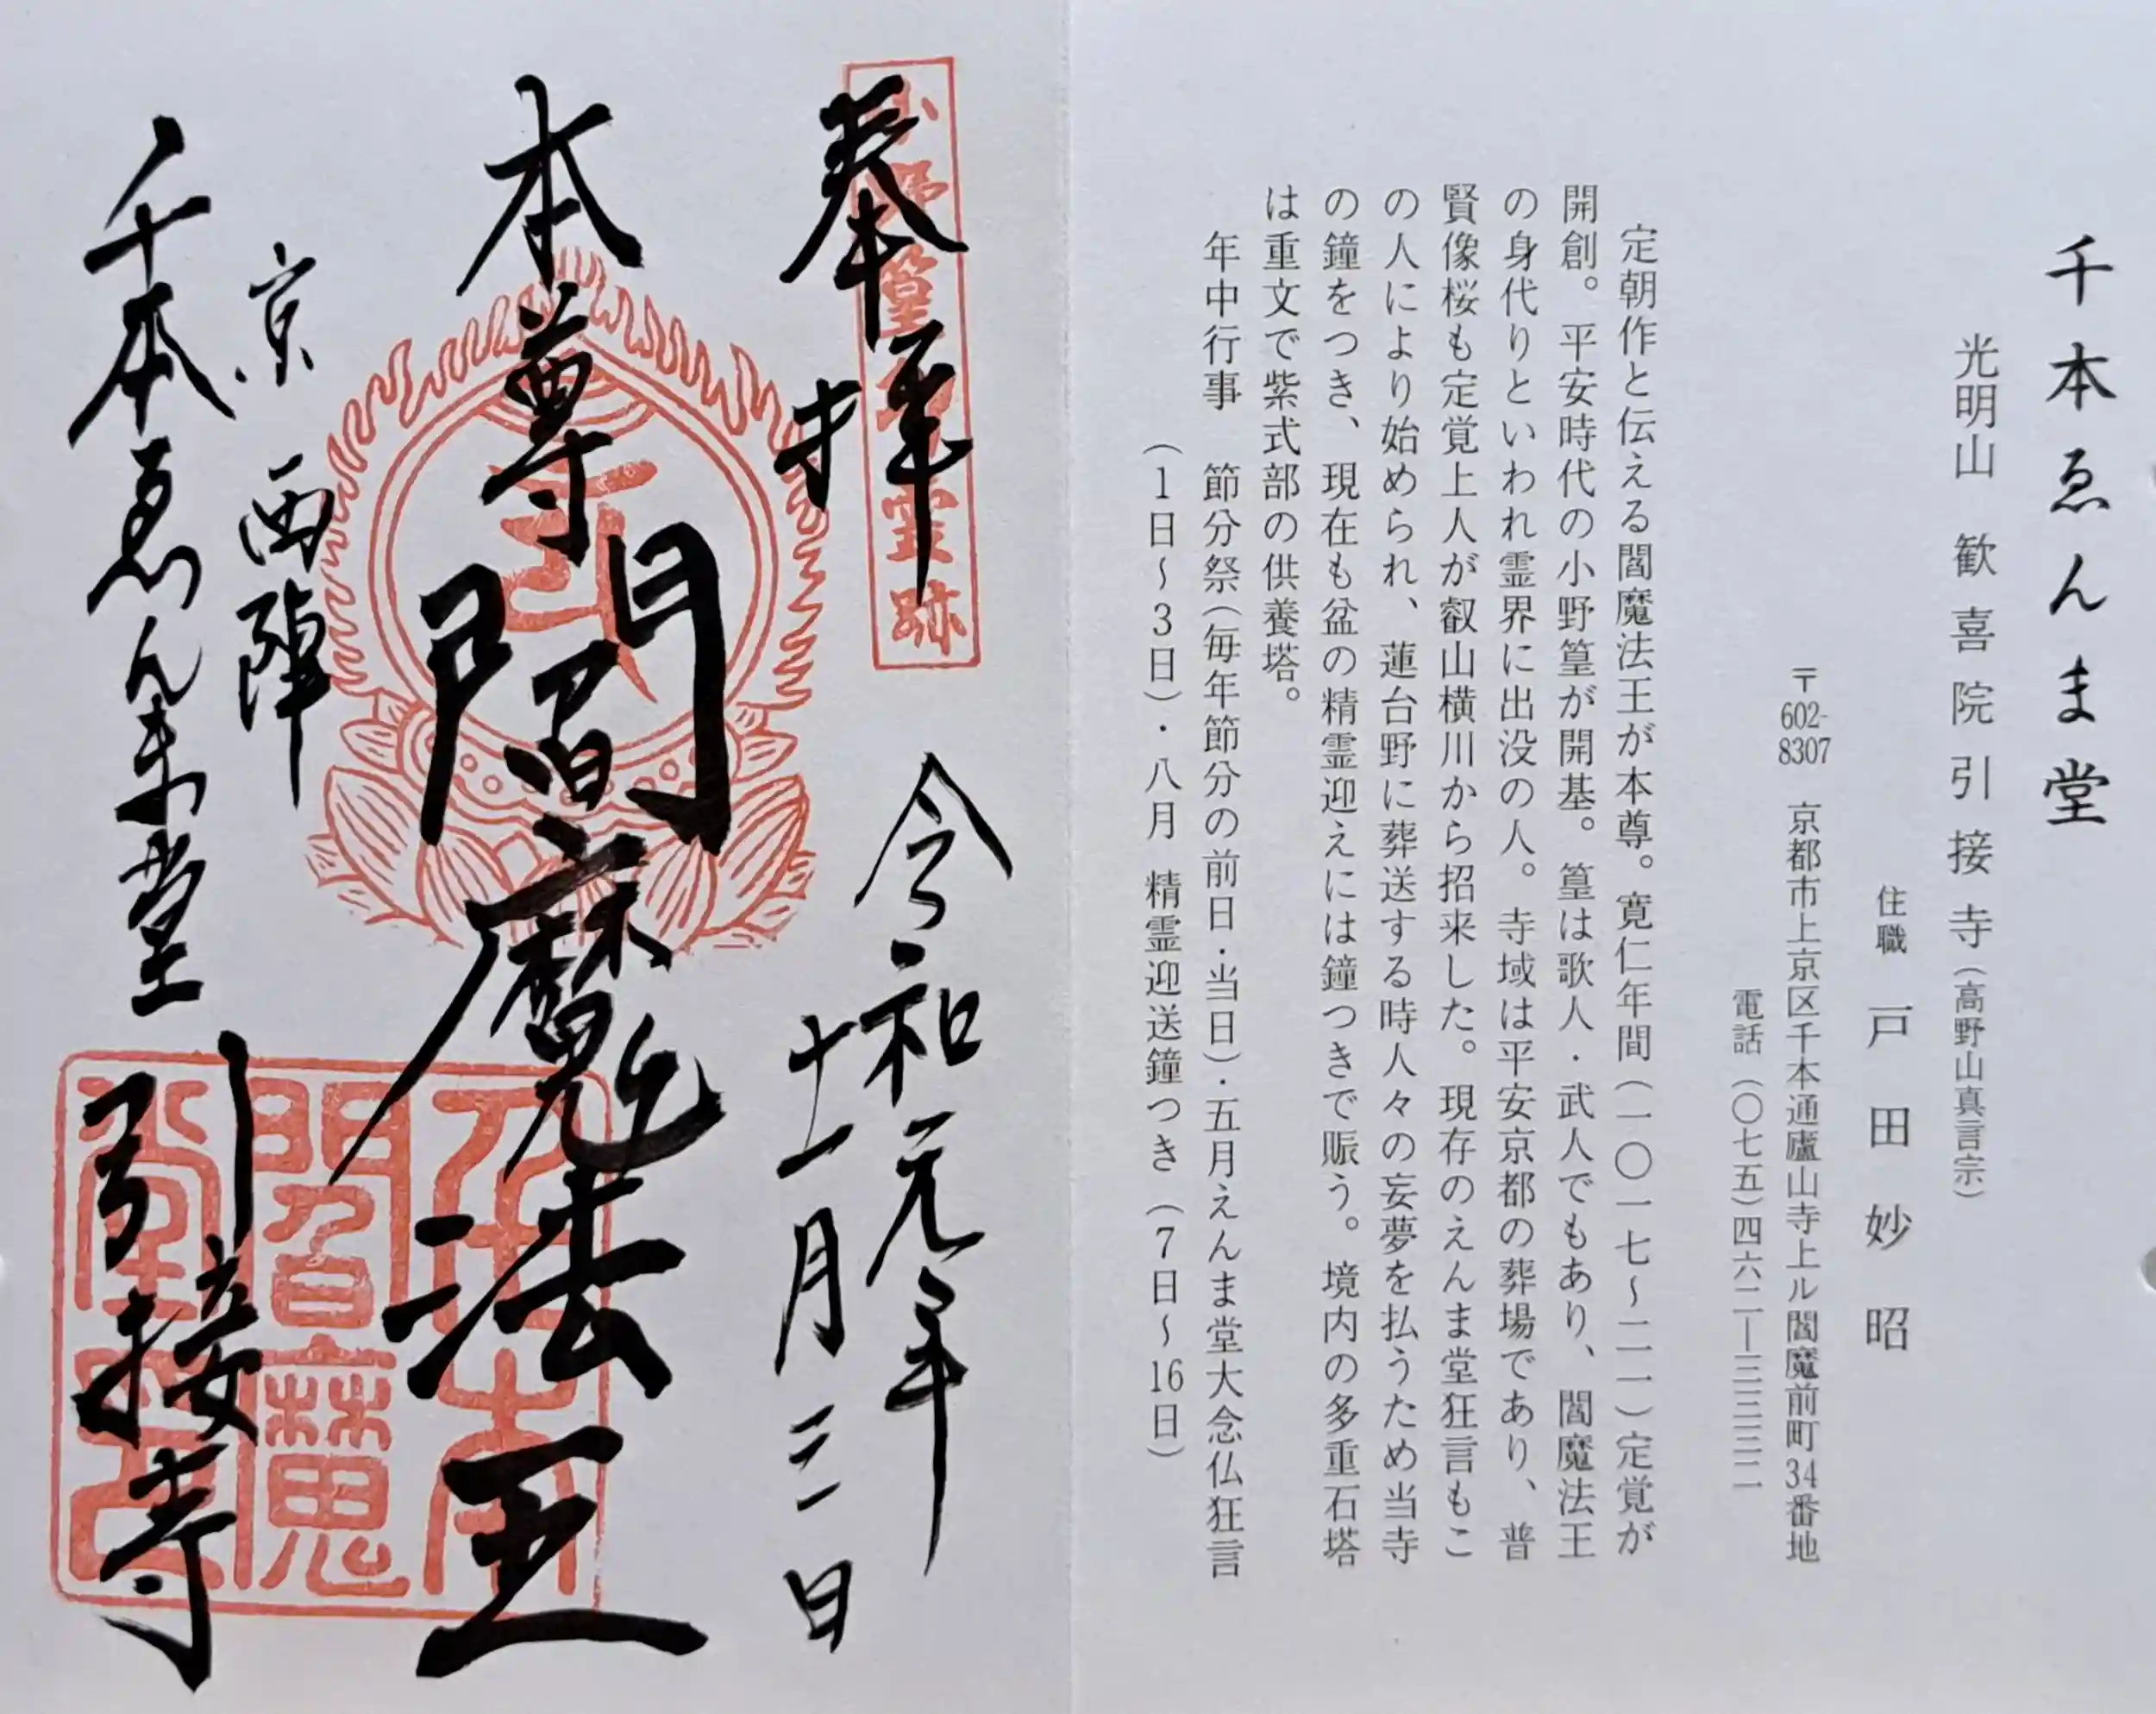 千本ゑんま堂
光明山 歓喜院引接寺(高野山真言宗)
住職 戸田妙昭
〒602-8307 京都市上京区千本通廬山寺上ル閻魔前町34番地
電話(〇七五)四六二―三三三二
定朝作と伝える閻魔法王が本尊。寛仁年間(一〇一七～二一)定覚が
開創。平安時代の小野篁が開基。篁は歌人・武人でもあり、閻魔法王
の身代りといわれ霊界に出没の人。寺域は平安京都の葬場であり、普
賢像桜も定覚上人が叡山横川から招来した。現存のえんま堂狂言もこ
の人により始められ、蓮台野に葬送する時人々の妄夢を払うため当寺
の鐘をつき、現在も盆の精霊迎えには鐘つきで賑う。境内の多重石塔
は重文で紫式部の供養塔。
年中行事 節分祭(毎年節分の前日・当日)・五月えんま堂大念仏狂言
(1日～3日)・八月 精霊迎送鐘つき(7日～16日)
奉拝
令和元年
十一月三日
本尊 閻魔法王
京 西陣
千本ゑんま堂 引接寺